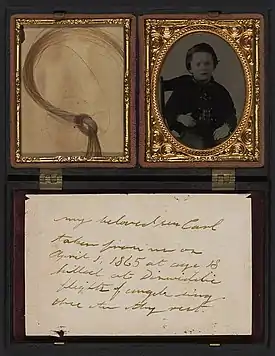 my beloved son Carl
taken from me on
April 1, 1865 at age 18
killed at Dinwiddie
flights of angels sing
thee to thy rest